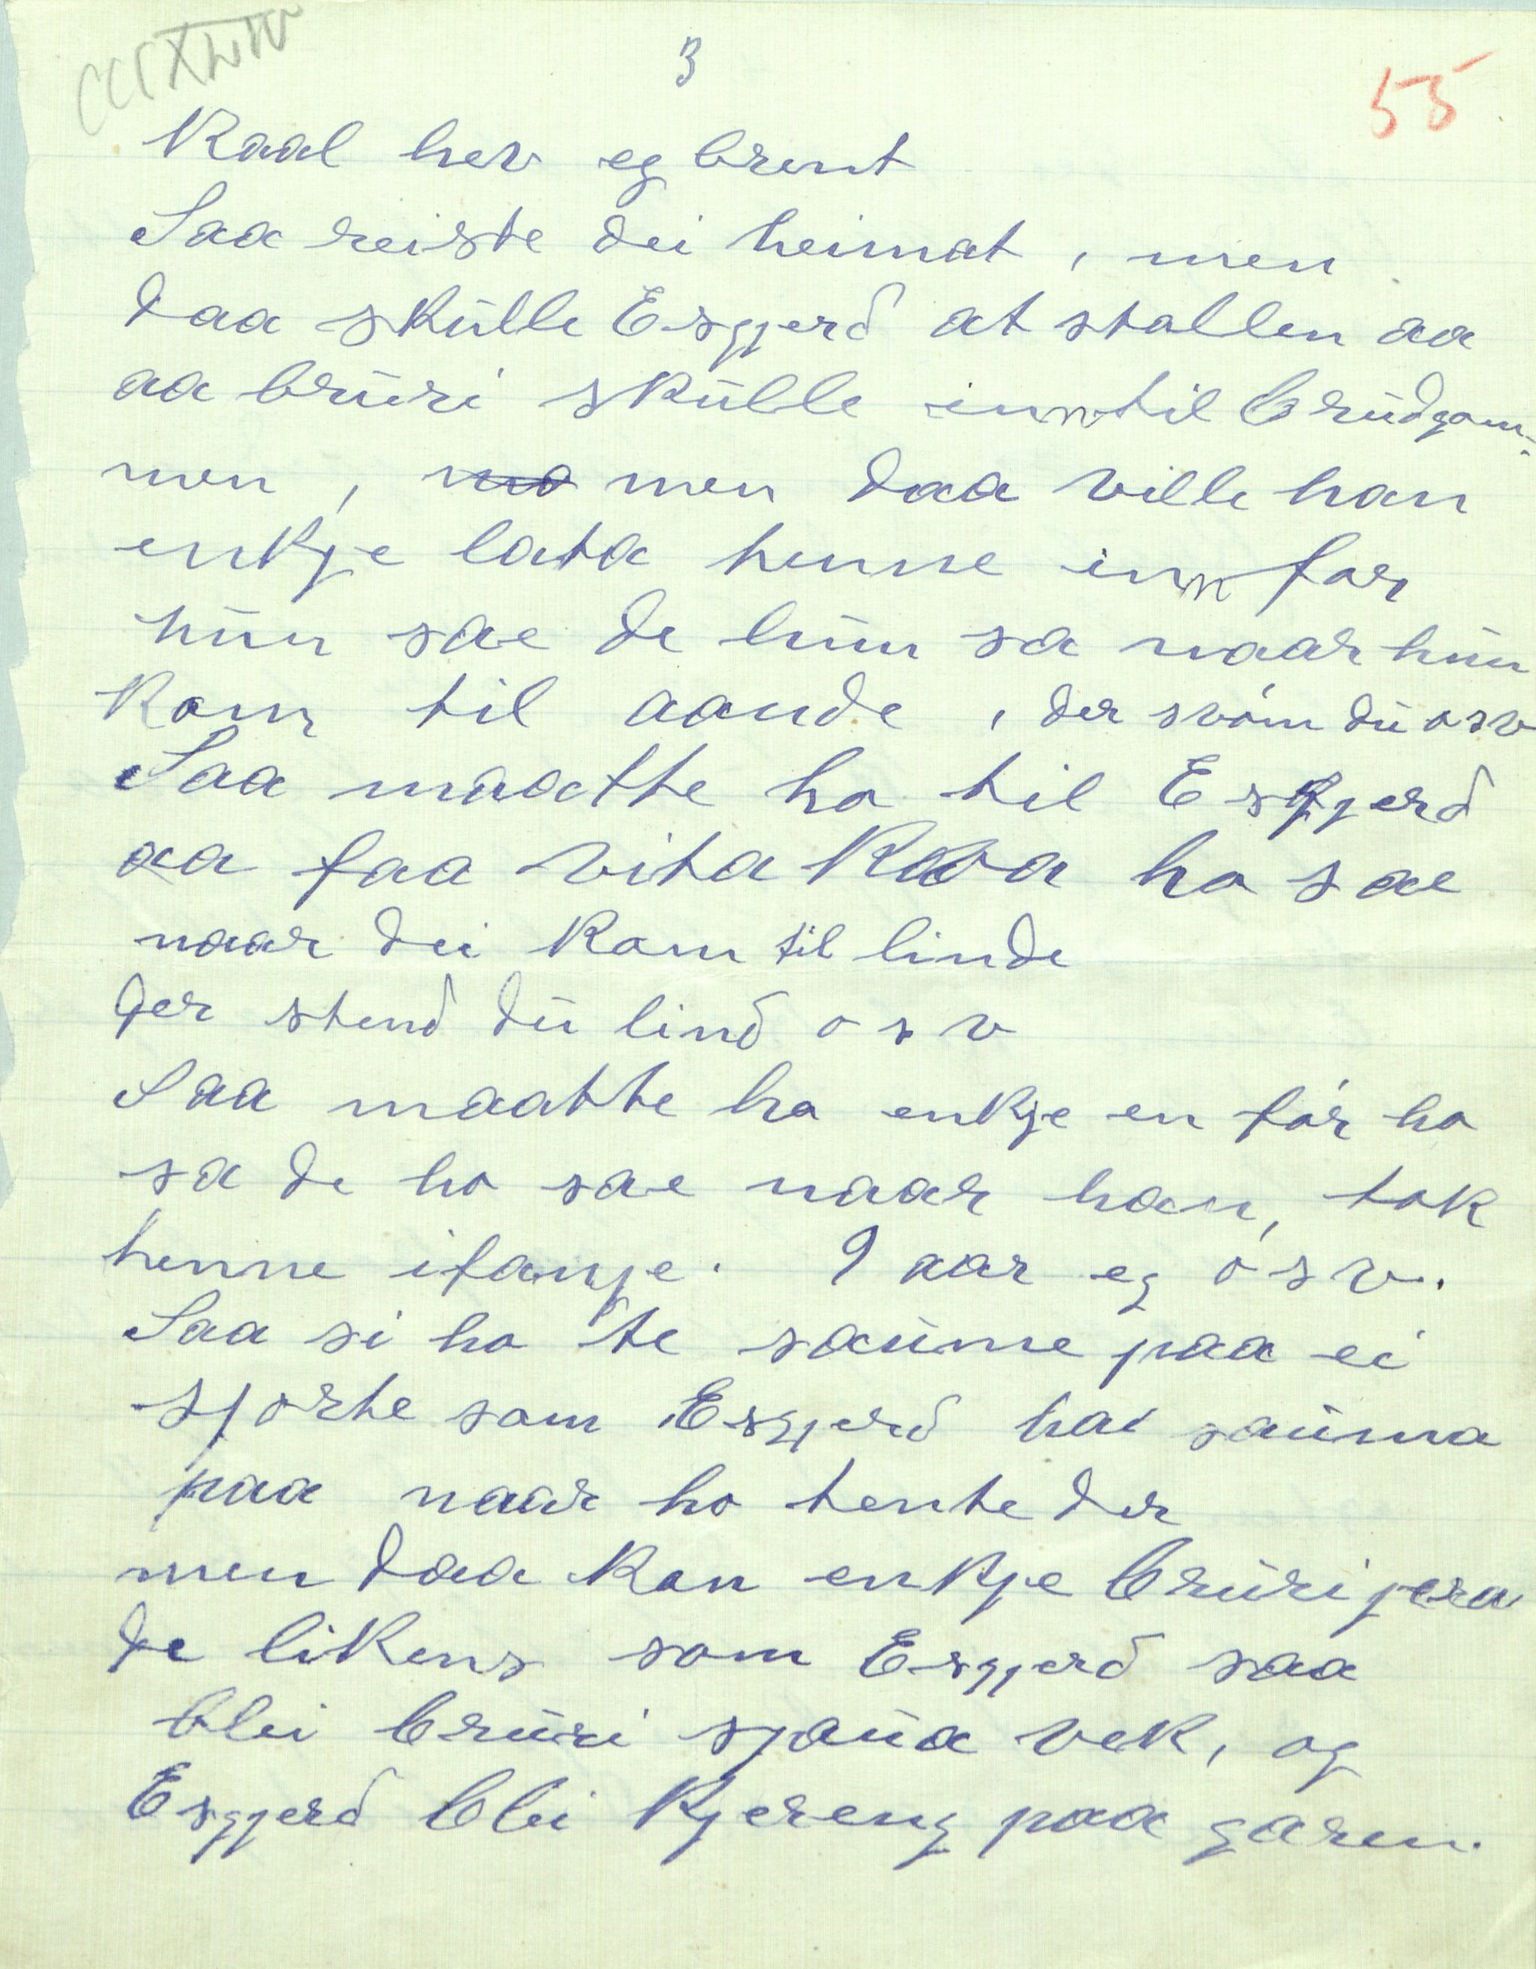 3
55
Kaal hev eg brent
Saa reiste dei heimat, men
daa skulle Esgjerd at stallen aa
aa bruri skulle inn til brudgom-
men, men daa ville han
enkje lata henne inn for
hun sae de hun sa naar hun
kom til aande, der svóm du osv
Saa maatte ho til Esgjerd
aa faa vita kva ho sae
naar dei kom til linde
der stend du lind osv
Saa maatte ho enkje en fór ho
sa de ho sae naar han, tok
henne ifanje. 9 aar eg osv.
Saa si ho te saume paa ei
sjorte som Esgjerd hai sauma
paa naar ho tente der
men daa kan enkje bruri jera
de likens som Esgjerd saa
blei bruri sjaua vek, og
Esgjerd blei kjereng paa garen.